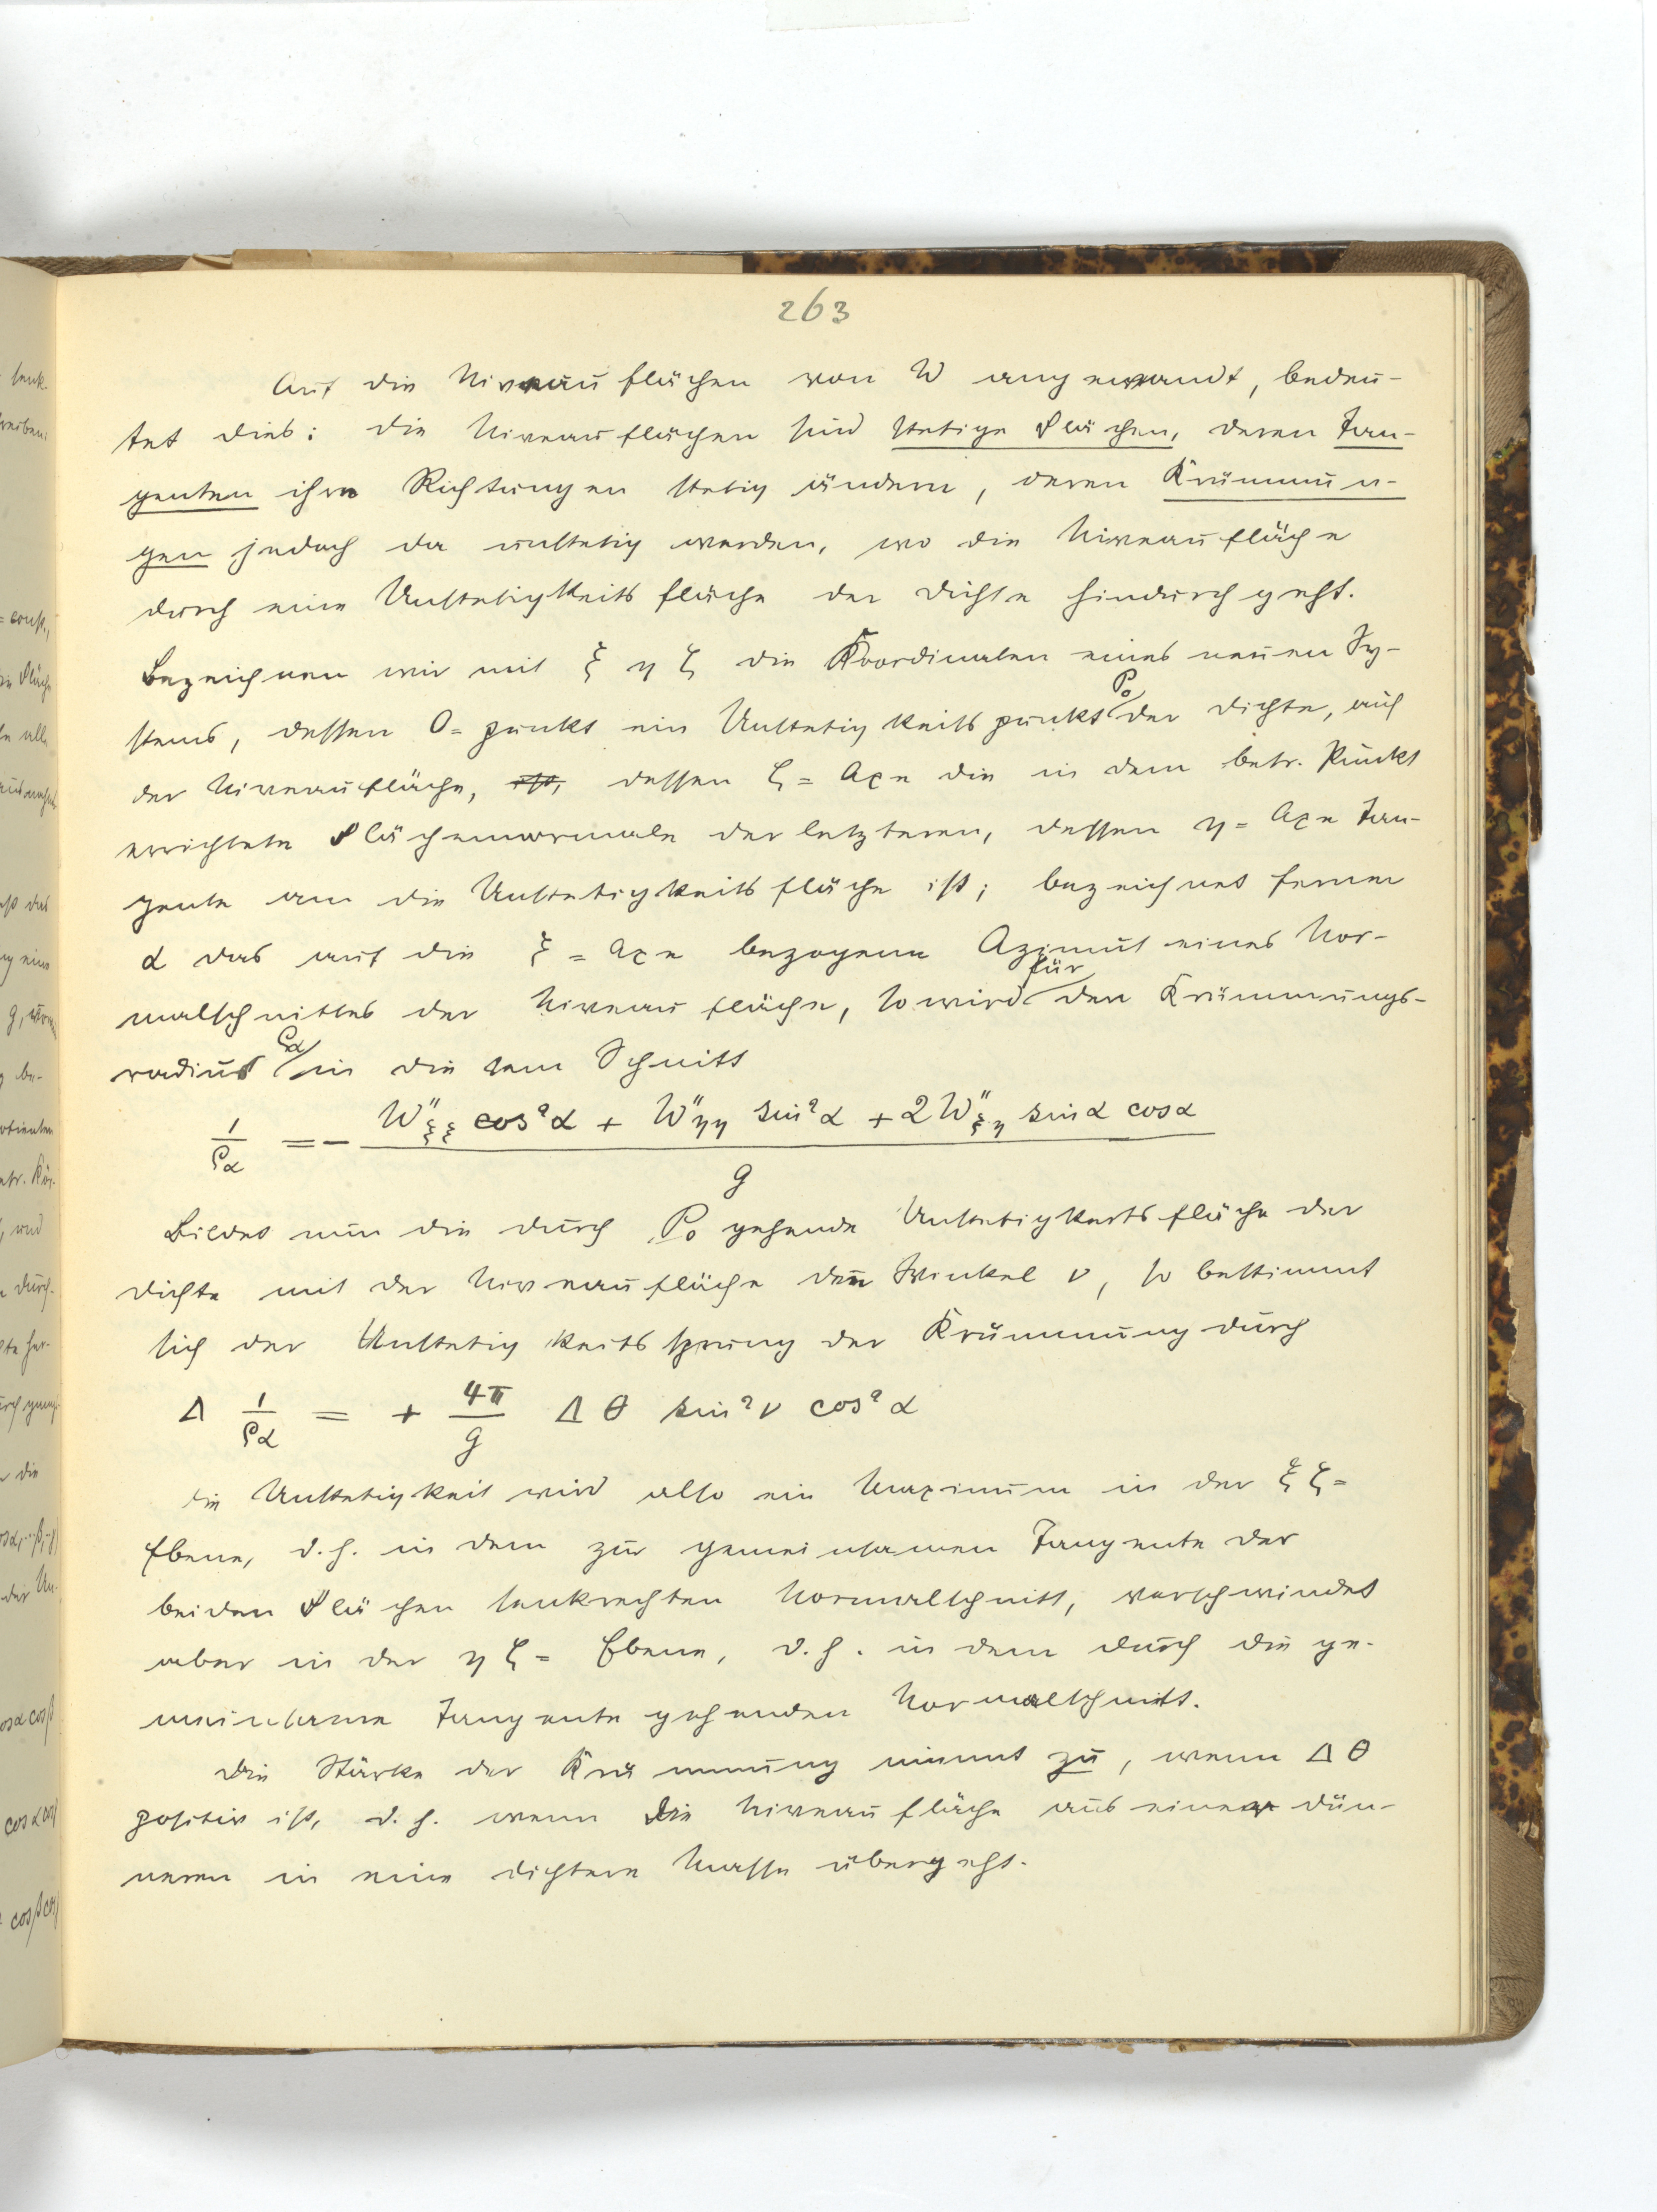 263
Auf die Niveauflächen von W angewandt, bedeu-
tet dies: die Niveauflächen sind stetige Flächen, deren Tan-
genten ihre Richtungen stetig ändern, deren Krümmun-
gen jedoch da unstetig werden, wo die Niveaufläche
durch eine Unstetigkeitsfläche der Dichte hindurchgeht.
Bezeichnen wir mit ξ η ζ die Koordinaten eines neuen Sy-
stems, dessen 0=punkt ein Unstetigkeitspunkt P₀ der Dichte, auf
der Niveaufläche, ist, dessen ζ=Axe die in dem betr. Punkt
errichtete Flächennormale der letzteren, dessen η=Axe Tan-
gente an die Unstetigkeitsfläche ist; bezeichnet ferner
α das auf die ξ=Axe bezogene Azimut eines Nor-
malschnittes der Niveaufläche, so wird für den Krümmungs-
radius ρα in diesem Schnitt
1/ρα = − (W″ξξ cos²α + W″ηη sin²α + 2W″ξη sinα cosα) / g
Bildet nun die durch P₀ gehende Unstetigkeitsfläche der
Dichte mit der Niveaufläche den Winkel ν, so bestimmt
sich der Unstetigkeitssprung der Krümmung durch
Δ 1/ρα = + 4π/g Δθ sin²ν cos²α
Die Unstetigkeit wird also ein Maximum in der ξζ=
Ebene, d.h. in dem zur gemeinsamen Tangente der
beiden Flächen senkrechten Normalschnitt, verschwindet
aber in der ηζ=Ebene, d.h. in dem durch die ge-
meinsame Tangente gehenden Normalschnitt.
Die Stärke der Krümmung nimmt zu, wenn Δθ
positiv ist, d.h. wenn die Niveaufläche aus einer dün-
neren in eine dichtere Masse übergeht.